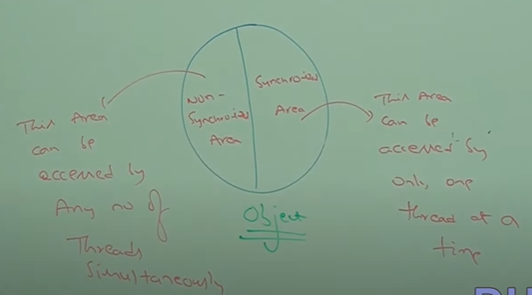 This Area
can be
accessed by
Any no of
Threads
simultaneously
Non-
Synchronized
Area
Synchronized
Area
Object
This Area
can be
accessed by
only one
thread at a
time